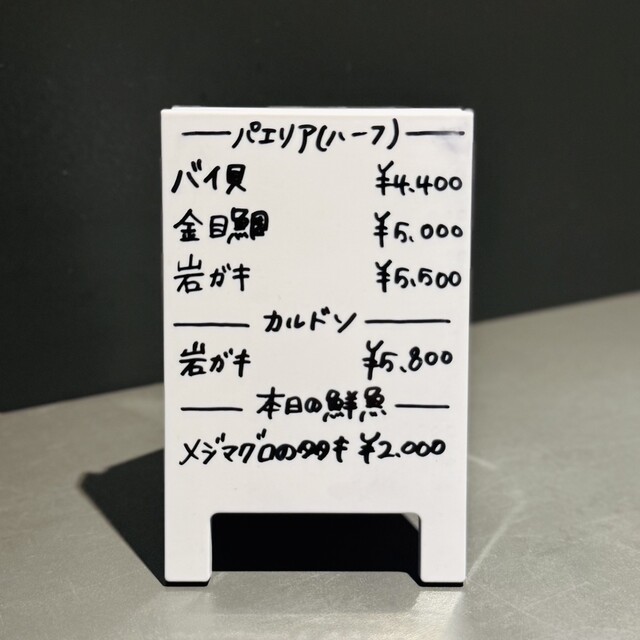 パエリア(ハーフ)
バイ貝 ¥4,400
金目鯛 ¥5,000
岩ガキ ¥5,500
カルドソ
岩ガキ ¥5,800
本日の鮮魚
メジマグロのタタキ ¥2,000